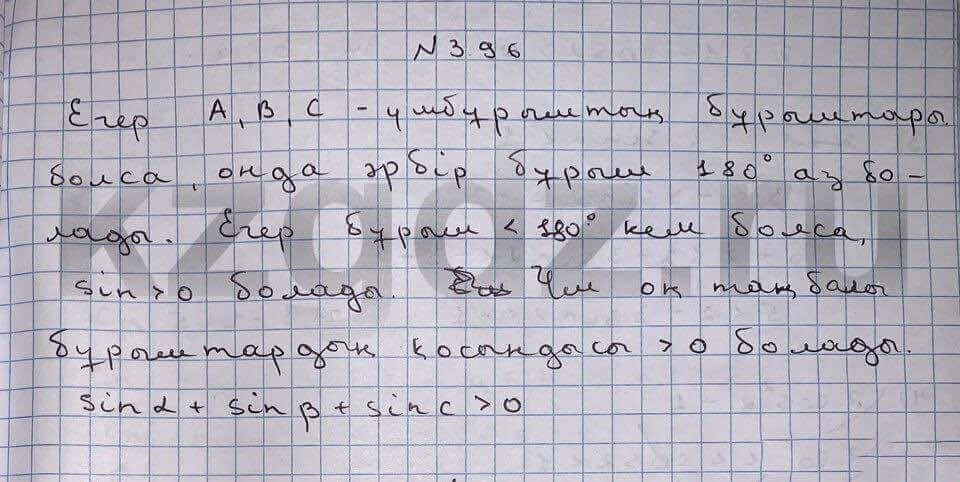 N 396
Егер A, B, C - үшбұрыштың бұрыштары
болса, онда әрбір бұрыш 180° аз бо-
лады. Егер бұрыш < 180° кем болса,
sin > 0 болады. Үш оң таңбалы
бұрыштардың қосындысы > 0 болады.
sin α + sin β + sin c > 0
kzgdz.ru